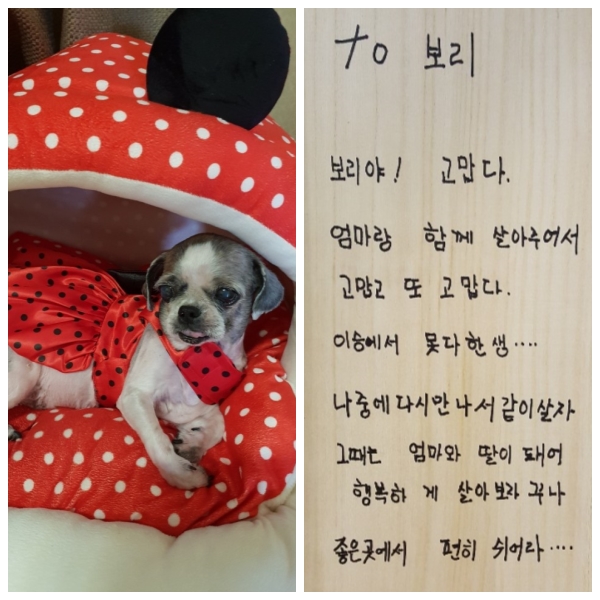 to 보리
보리야! 고맙다.
엄마랑 함께 살아주어서
고맙고 또 고맙다.
이승에서 못다한 생....
나중에 다시 만나서 같이 살자
그때는 엄마와 딸이 돼어
행복하게 살아보라꾸나
좋은곳에서 편히 쉬어라....